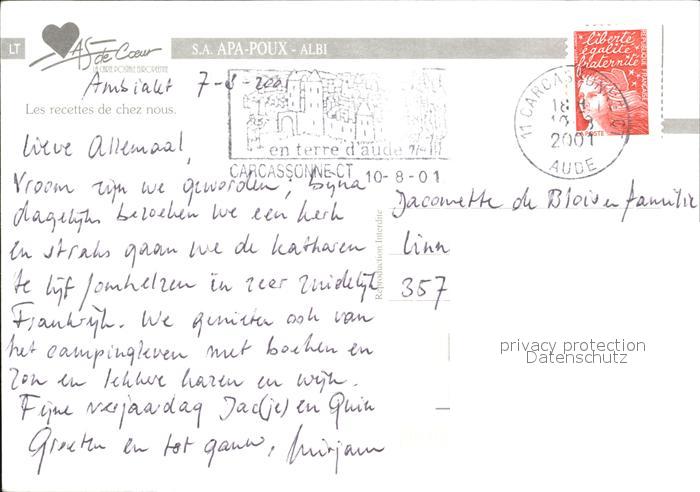 LT
AS de Cœur
LA CARTE POSTALE EUROPEENNE
S.A. APA-POUX - ALBI
Ambialet 7-8-2001
Les recettes de chez nous.
liberté
égalité
fraternité
REPUBLIQUE FRANCAISE
LA POSTE
11 CARCASSONNE CT
18 H
10 8
2001
AUDE
en terre d'aude
CARCASSONNE CT 10-8-01
Lieve Allemaal,
Vroom zijn we geworden, bijna
dagelijks bezoeken we een kerk
en straks gaan we de katharen
te lijf/omhelzen in zeer zuidelijk
Frankrijk. We genieten ook van
het campingleven met boeken en
zon en lekkere kazen en wijn.
Fijne verjaardag Jac(je) en Quin
Groeten en tot gauw, Mirjam
Reproduction Interdite
Jacomette de Blois en familie
Linn
357
privacy protection
Datenschutz